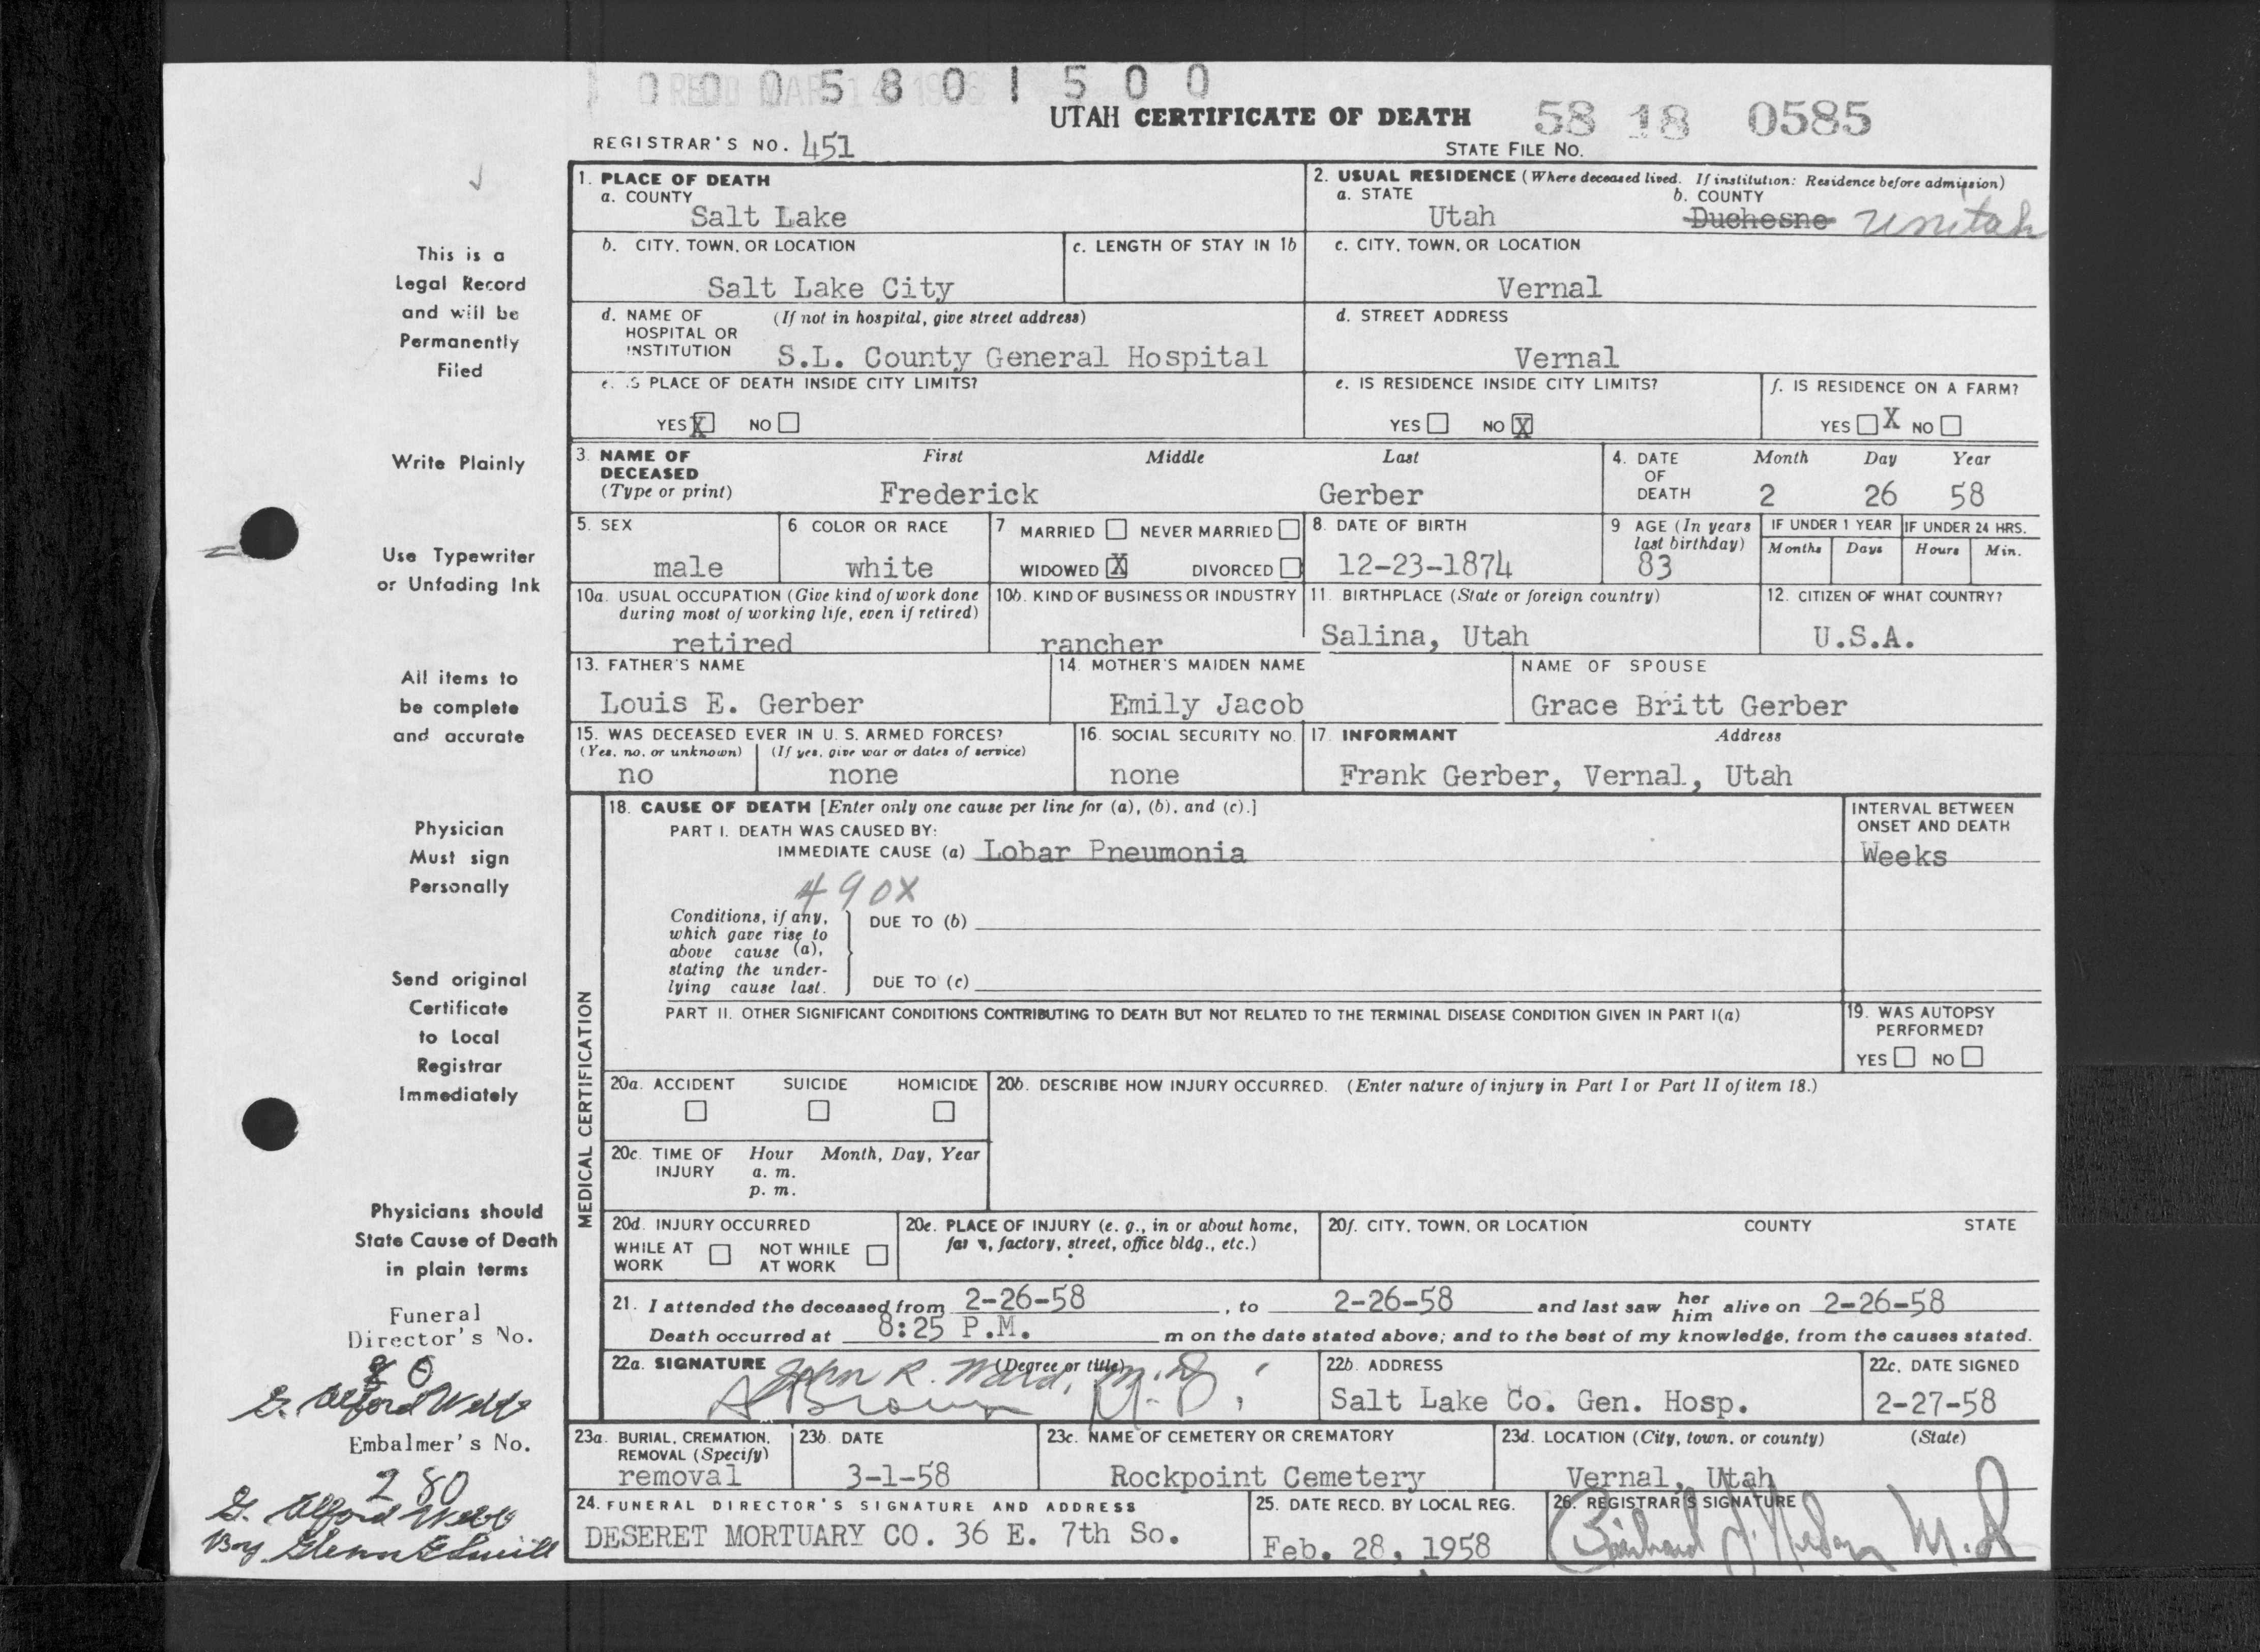 0005801500
UTAH CERTIFICATE OF DEATH 58 18 0585
REGISTRAR'S NO. 451 STATE FILE No.
1. PLACE OF DEATH
a. COUNTY
Salt Lake
2. USUAL RESIDENCE (Where deceased lived. If institution: Residence before admission)
a. STATE b. COUNTY
Utah Duchesne Unitah
b. CITY, TOWN, OR LOCATION c. LENGTH OF STAY IN 1b
Salt Lake City
c. CITY, TOWN, OR LOCATION
Vernal
d. NAME OF (If not in hospital, give street address)
HOSPITAL OR
INSTITUTION S.L. County General Hospital
d. STREET ADDRESS
Vernal
e. IS PLACE OF DEATH INSIDE CITY LIMITS?
YES X NO
e. IS RESIDENCE INSIDE CITY LIMITS?
YES NO X
f. IS RESIDENCE ON A FARM?
YES X NO
3. NAME OF DECEASED First Middle Last
(Type or print) Frederick Gerber
4. DATE OF DEATH Month Day Year
2 26 58
5. SEX
male
6 COLOR OR RACE
white
7 MARRIED NEVER MARRIED
WIDOWED X DIVORCED
8. DATE OF BIRTH
12-23-1874
9 AGE (In years last birthday)
83
IF UNDER 1 YEAR IF UNDER 24 HRS.
Months Days Hours Min.
10a. USUAL OCCUPATION (Give kind of work done
during most of working life, even if retired)
retired
10b. KIND OF BUSINESS OR INDUSTRY
rancher
11. BIRTHPLACE (State or foreign country)
Salina, Utah
12. CITIZEN OF WHAT COUNTRY?
U.S.A.
13. FATHER'S NAME
Louis E. Gerber
14. MOTHER'S MAIDEN NAME
Emily Jacob
NAME OF SPOUSE
Grace Britt Gerber
15. WAS DECEASED EVER IN U. S. ARMED FORCES?
(Yes, no, or unknown) (If yes, give war or dates of service)
no none
16. SOCIAL SECURITY NO.
none
17. INFORMANT Address
Frank Gerber, Vernal, Utah
MEDICAL CERTIFICATION
18. CAUSE OF DEATH [Enter only one cause per line for (a), (b), and (c).]
PART I. DEATH WAS CAUSED BY:
IMMEDIATE CAUSE (a) Lobar Pneumonia
INTERVAL BETWEEN
ONSET AND DEATH
Weeks
490X
Conditions, if any,
which gave rise to
above cause (a),
stating the under-
lying cause last.
DUE TO (b)
DUE TO (c)
PART II. OTHER SIGNIFICANT CONDITIONS CONTRIBUTING TO DEATH BUT NOT RELATED TO THE TERMINAL DISEASE CONDITION GIVEN IN PART I(a)
19. WAS AUTOPSY
PERFORMED?
YES NO
20a. ACCIDENT SUICIDE HOMICIDE
20b. DESCRIBE HOW INJURY OCCURRED. (Enter nature of injury in Part I or Part II of item 18.)
20c. TIME OF INJURY Hour Month, Day, Year
a. m.
p. m.
20d. INJURY OCCURRED
WHILE AT WORK NOT WHILE AT WORK
20e. PLACE OF INJURY (e. g., in or about home,
farm, factory, street, office bldg., etc.)
20f. CITY, TOWN, OR LOCATION COUNTY STATE
21. I attended the deceased from 2-26-58, to 2-26-58 and last saw her him alive on 2-26-58
Death occurred at 8:25 P.M. m on the date stated above; and to the best of my knowledge, from the causes stated.
22a. SIGNATURE (Degree or title)
John R. Ward, M.D.
Brown M.D.
22b. ADDRESS
Salt Lake Co. Gen. Hosp.
22c. DATE SIGNED
2-27-58
23a. BURIAL, CREMATION,
REMOVAL (Specify)
removal
23b. DATE
3-1-58
23c. NAME OF CEMETERY OR CREMATORY
Rockpoint Cemetery
23d. LOCATION (City, town, or county) (State)
Vernal, Utah
24. FUNERAL DIRECTOR'S SIGNATURE AND ADDRESS
DESERET MORTUARY CO. 36 E. 7th So.
25. DATE RECD. BY LOCAL REG.
Feb. 28, 1958
26. REGISTRAR'S SIGNATURE
M.D
This is a
Legal Record
and will be
Permanently
Filed
Write Plainly
Use Typewriter
or Unfading Ink
All items to
be complete
and accurate
Physician
Must sign
Personally
Send original
Certificate
to Local
Registrar
Immediately
Physicians should
State Cause of Death
in plain terms
Funeral
Director's No.
80
G. Alford Webb
Embalmer's No.
280
G. Alford Webb
By Glenn